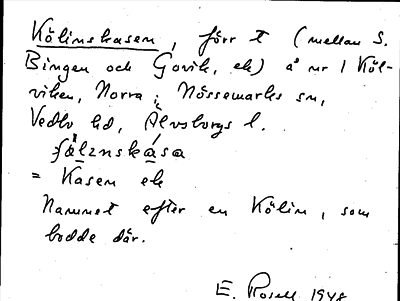 Kölinskasen, förr t (mellan S.
Bingen och Govik, ek) å nr 1 Köl-
viken, Norra; Nössemarks sn,
Vedbo hd, Älvsborgs l.
= Kasen ek
Namnet efter en Kölin, som
bodde där.
E. Rosell 1948